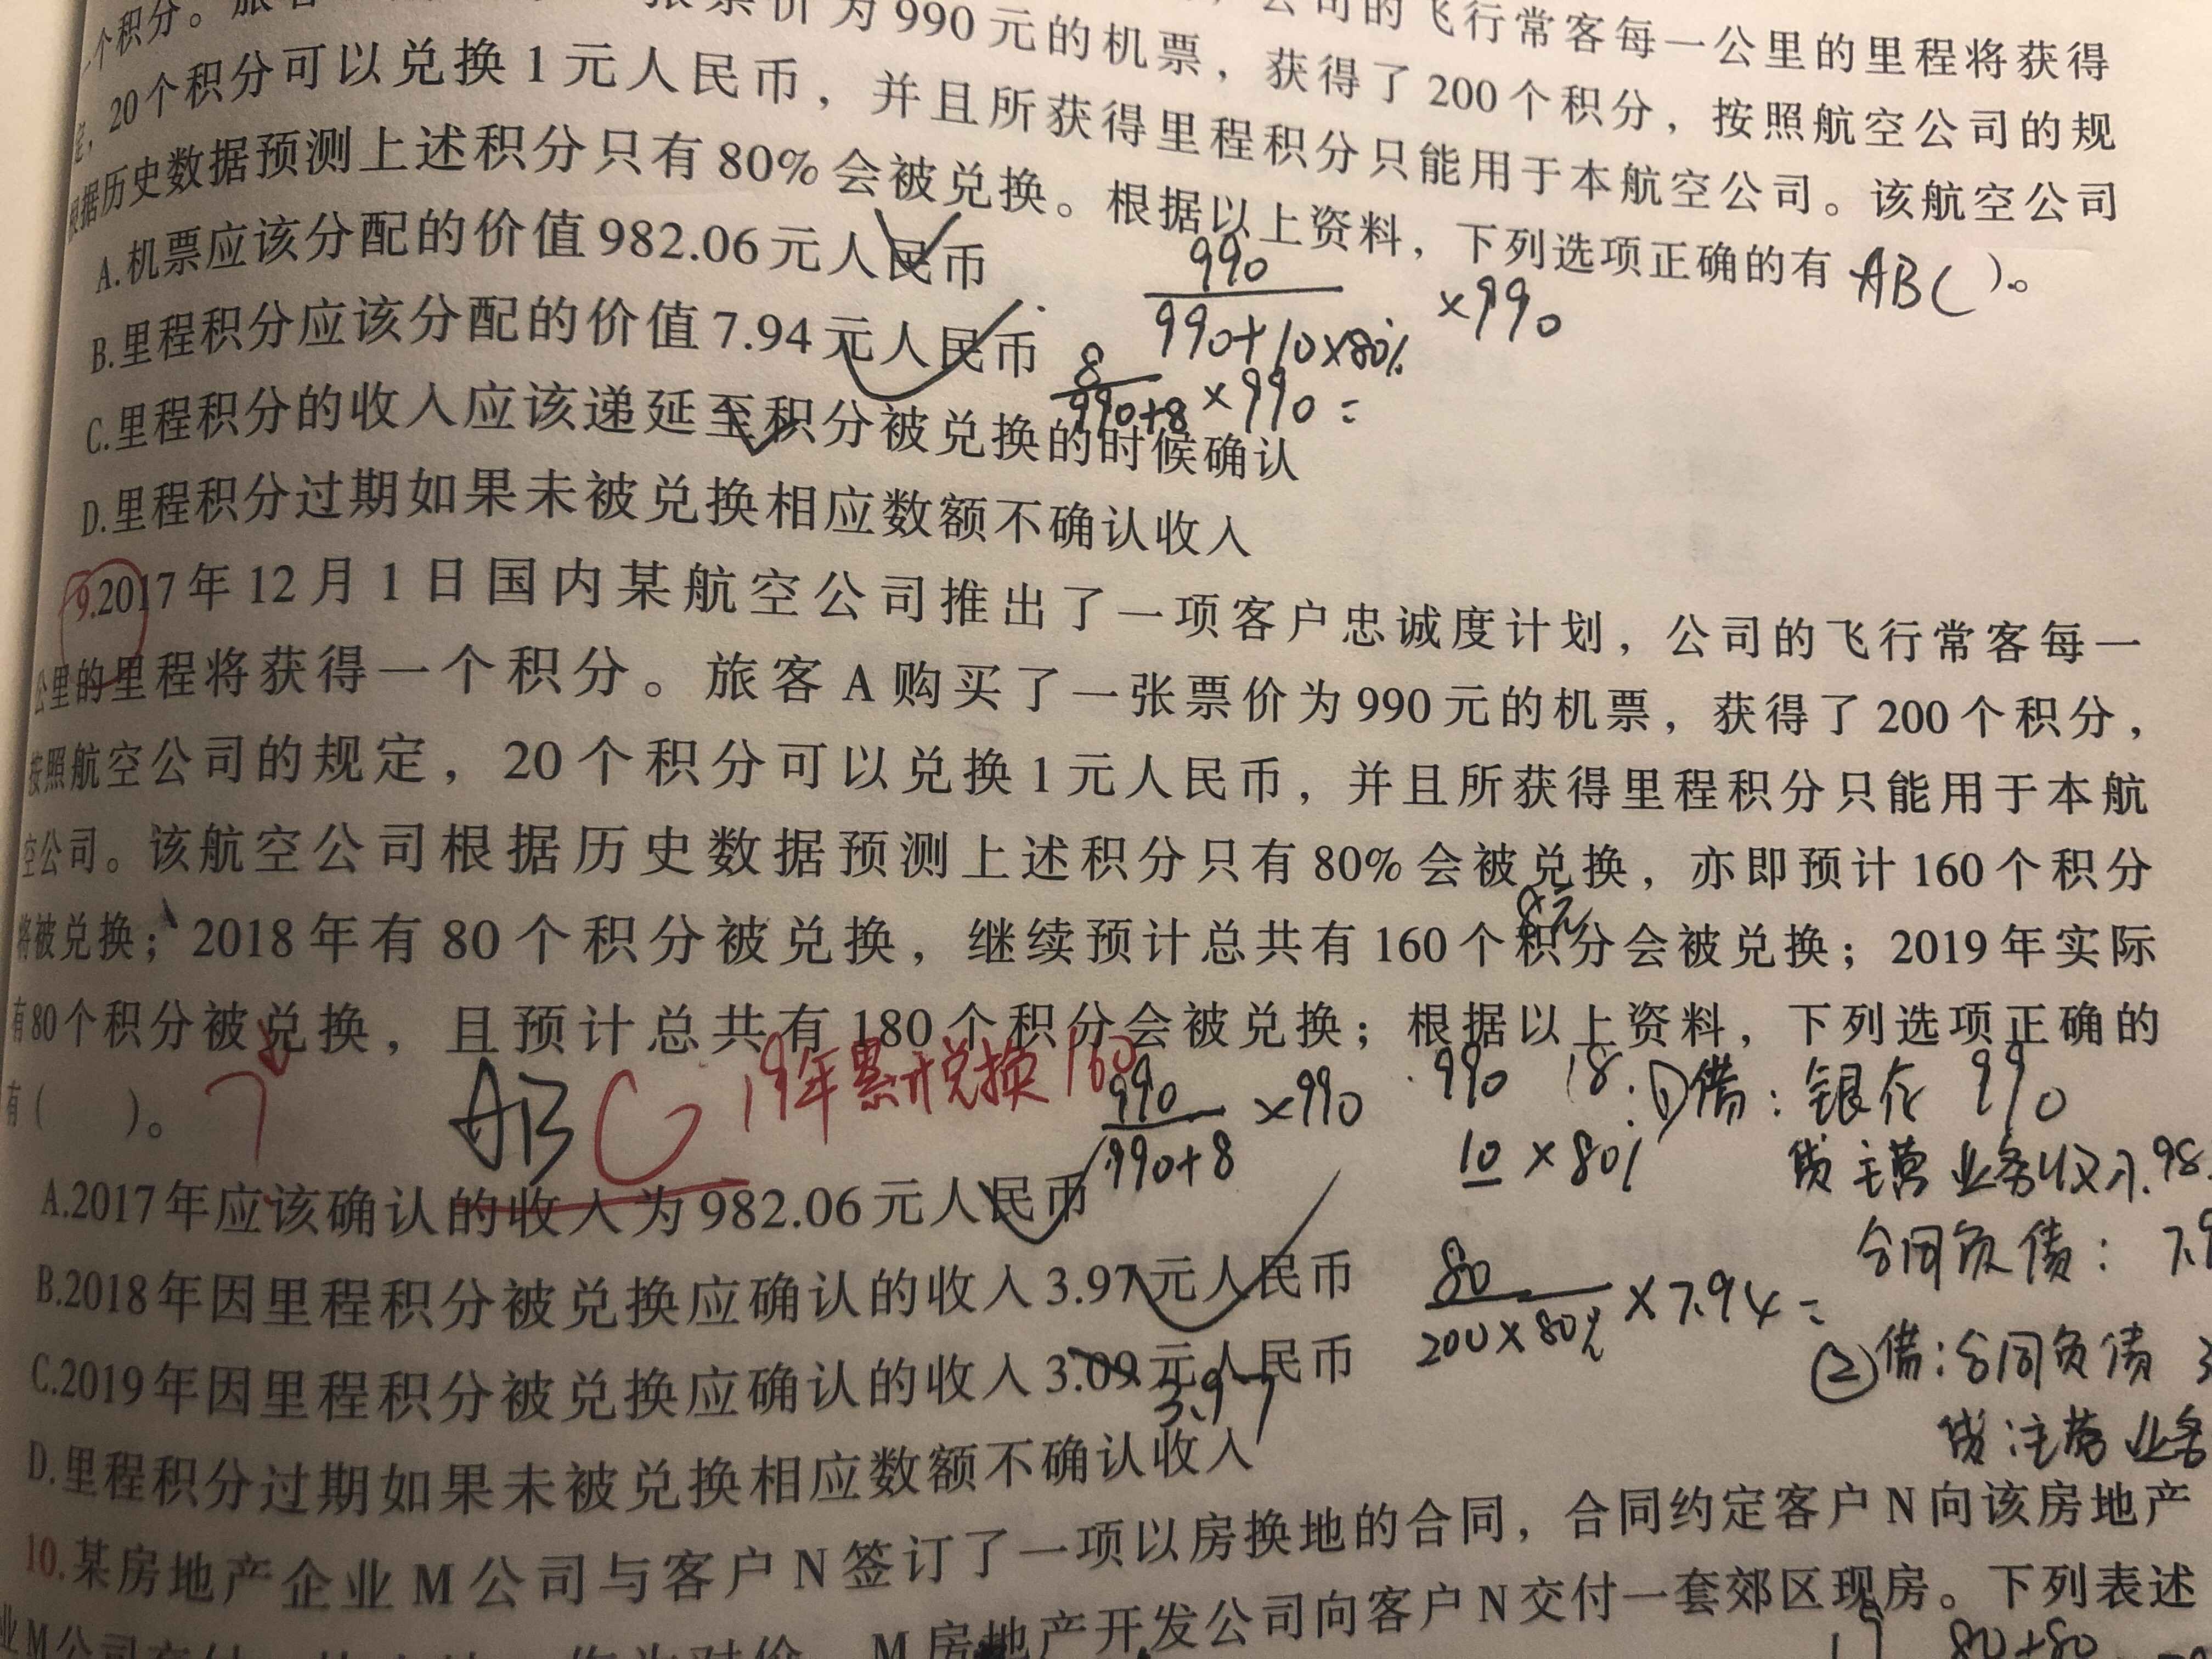 ，公司的飞行常客每一公里的里程将获得
一个积分。旅客 张票价为990元的机票，获得了200个积分，按照航空公司的规
定，20个积分可以兑换1元人民币，并且所获得里程积分只能用于本航空公司。该航空公司
根据历史数据预测上述积分只有80%会被兑换。根据以上资料，下列选项正确的有 ABC ）。
A.机票应该分配的价值982.06元人民币
990
990+10×80%
×990
B.里程积分应该分配的价值7.94元人民币
8
990+8
×990=
C.里程积分的收入应该递延至积分被兑换的时候确认
D.里程积分过期如果未被兑换相应数额不确认收入
9.2017年12月1日国内某航空公司推出了一项客户忠诚度计划，公司的飞行常客每一
公里的里程将获得一个积分。旅客A购买了一张票价为990元的机票，获得了200个积分，
按照航空公司的规定，20个积分可以兑换1元人民币，并且所获得里程积分只能用于本航
空公司。该航空公司根据历史数据预测上述积分只有80%会被兑换，亦即预计160个积分
将被兑换；2018年有80个积分被兑换，继续预计总共有160个积分会被兑换；2019年实际
8元
有80个积分被兑换，且预计总共有180个积分会被兑换；根据以上资料，下列选项正确的
有（ ）。
ABC
19年累计兑换160
990
990+8
×990
990 18
10×80%
①借：银存 990
贷 主营业务收入 98
合同负债：7.9
A.2017年应该确认的收入为982.06元人民币
B.2018年因里程积分被兑换应确认的收入3.97元人民币
80
200×80%
×7.94=
C.2019年因里程积分被兑换应确认的收入3.09元人民币
3.97
②借：合同负债 3
贷：主营业务
D.里程积分过期如果未被兑换相应数额不确认收入
10.某房地产企业M公司与客户N签订了一项以房换地的合同，合同约定客户N向该房地产
业M公司交付 作为对价，M房地产开发公司向客户N交付一套郊区现房。下列表述
80+80